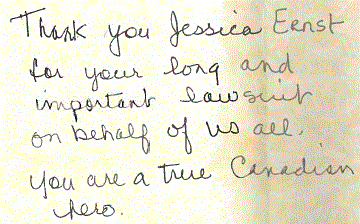 Thank you Jessica Ernst
for your long and
important lawsuit
on behalf of us all.
You are a true Canadian
hero.